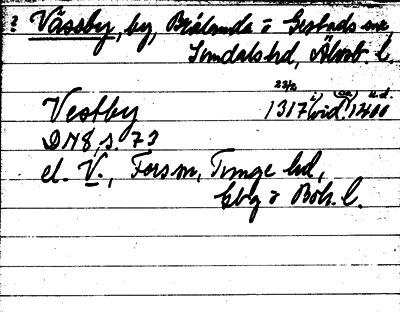 ? Vässby, by, Brålanda o Gestads snr,
Sundals hd, Älvsb. l.
Vestby 23/2 1317 (vid. 1400
DN 8, s. 73
el. V., Fors sn, Tunge hd,
Gbg o Boh. l.